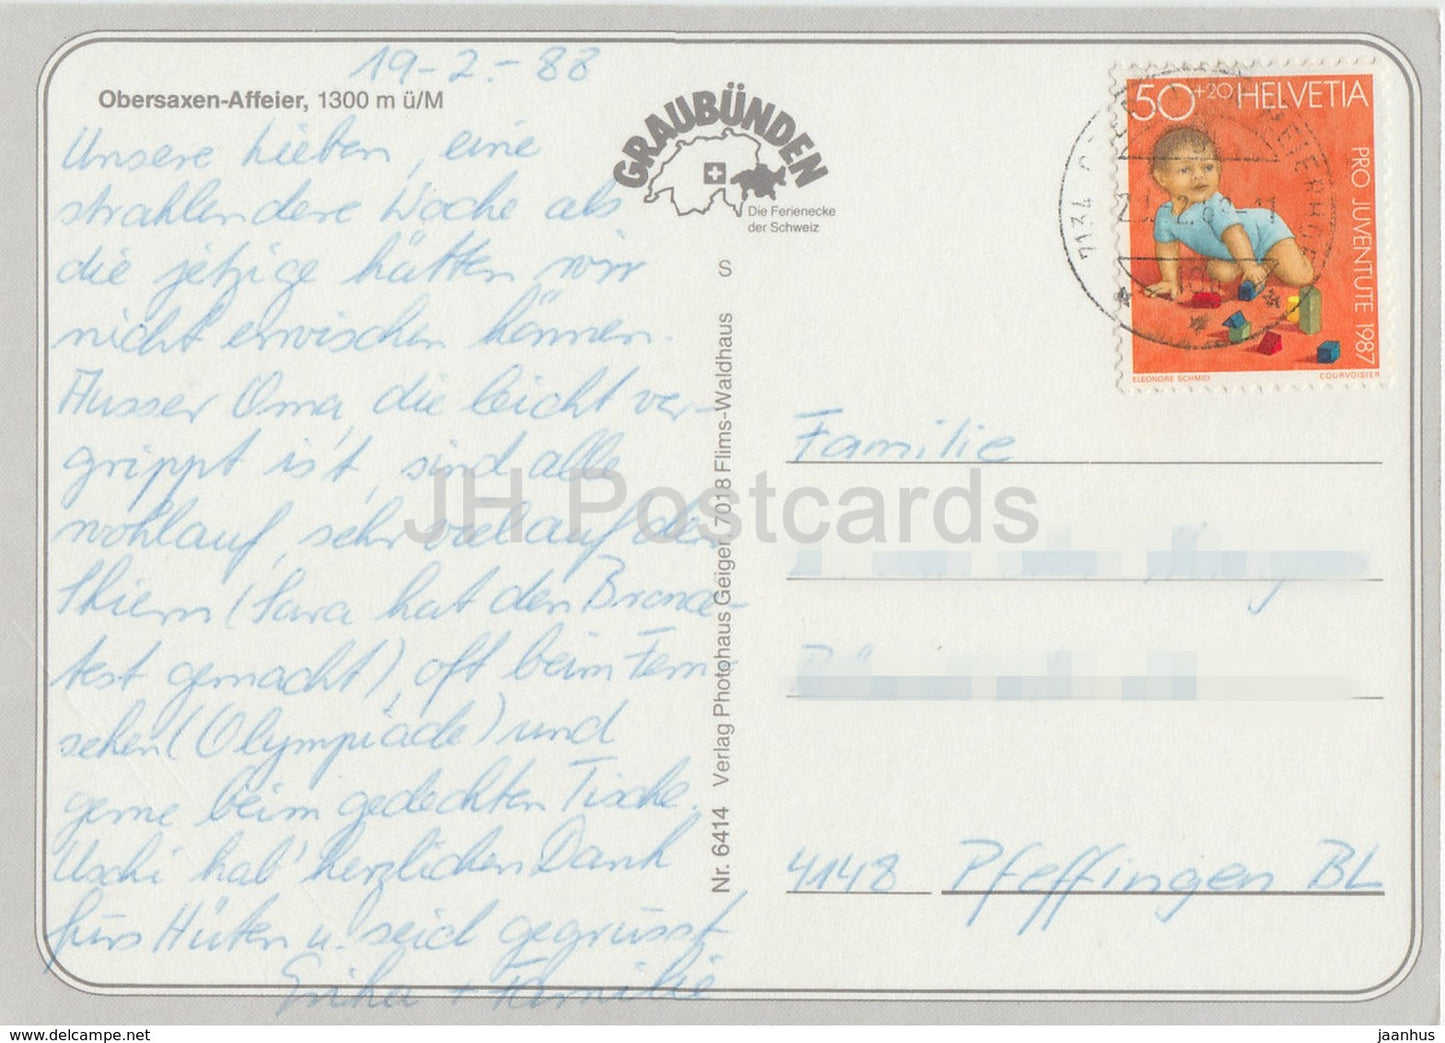 19-2.-88
Obersaxen-Affeier, 1300 m ü/M
Unsere Lieben, eine
strahlendere Woche als
die jetzige hätten wir
nicht erwischen können.
Ausser Oma, die leicht ver-
grippt ist, sind alle
wohlauf, sehr viel auf den
Skiern (Sara hat den Bronce-
test gemacht), oft beim Fern-
sehen (Olympiade) und
gerne beim gedeckten Tische.
Uschi hab' herzlichen Dank
fürs Hüten u. seid gegrüsst
+ Familie
GRAUBÜNDEN
Die Ferienecke
der Schweiz
S
Nr. 6414 Verlag Photohaus Geiger, 7018 Flims-Waldhaus
50+20 HELVETIA
PRO JUVENTUTE 1987
ELEONORE SCHMID
COURVOISIER
7134
Familie
4148 Pfeffingen BL
JH Postcards
www.delcampe.net
jaanhus